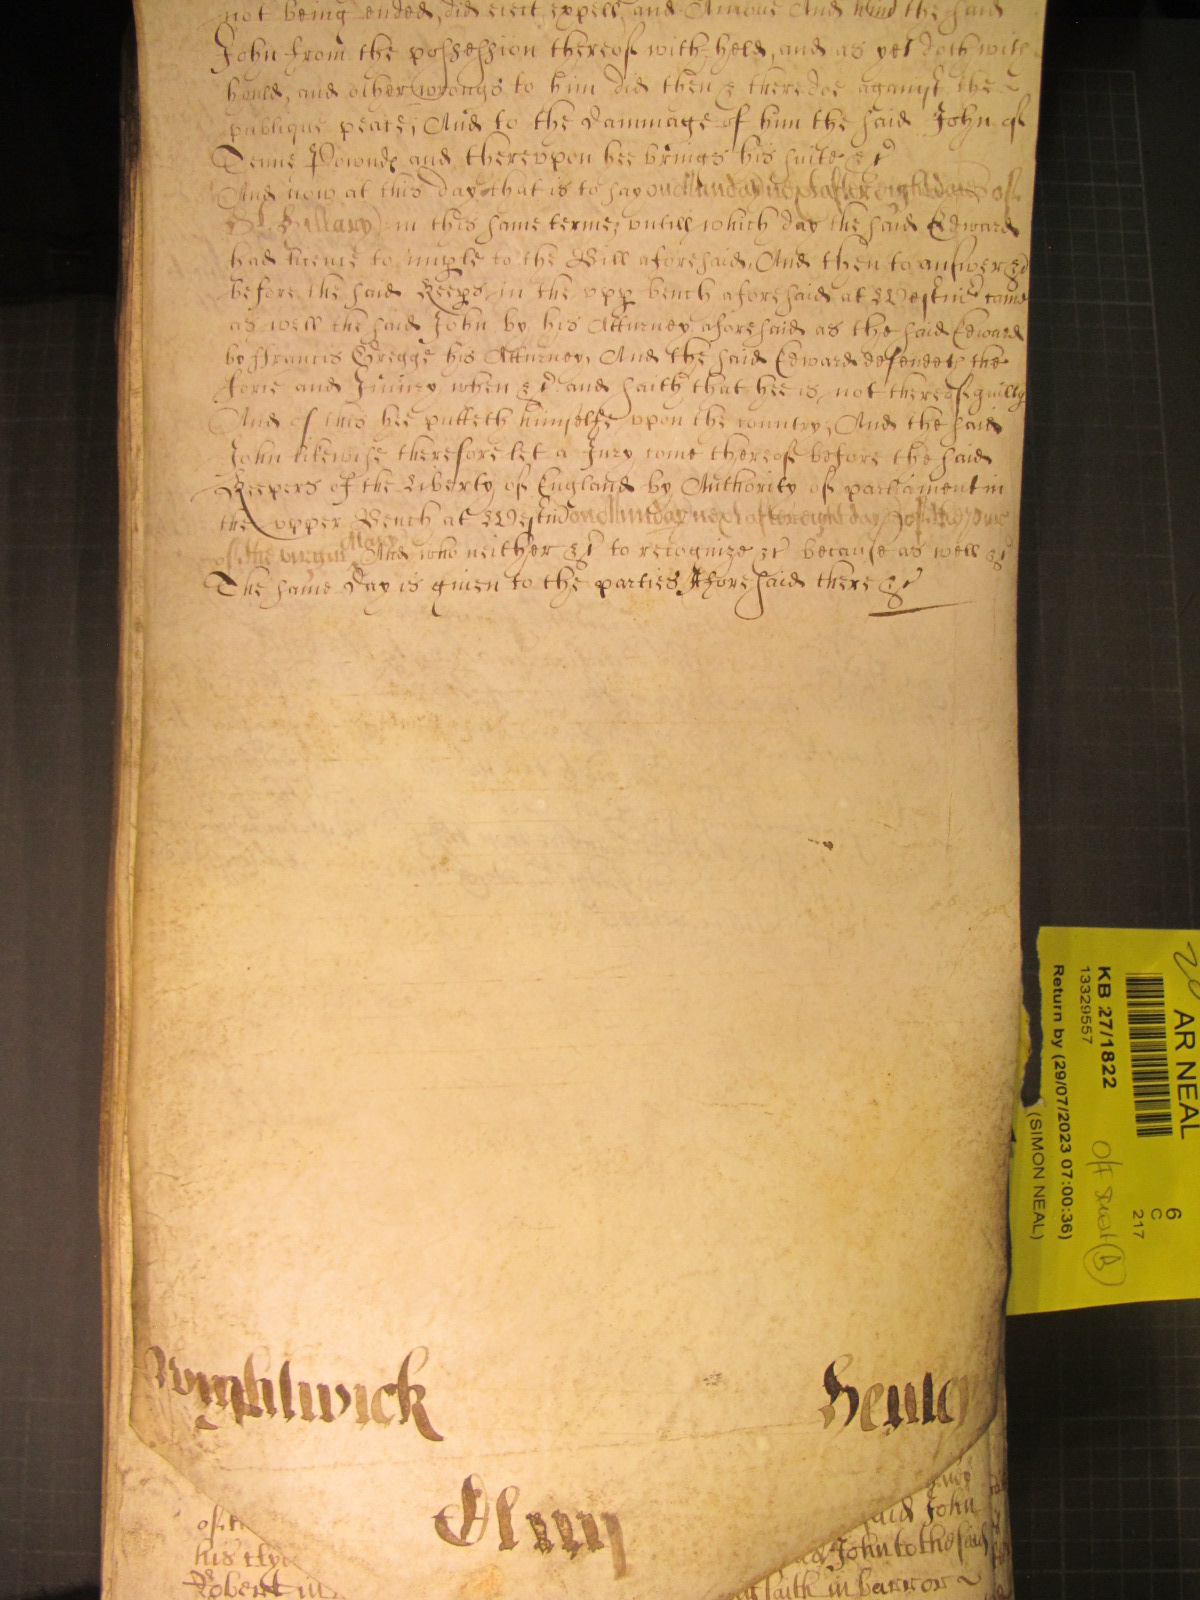 not being ended, did eiect expell, and Amove And the said
John from the possession thereof with held, and as yet doth with
hould, and other wrongs to him did then & there doe against the
publique peace, And to the dammage of him the said John of
Tenne Pownds and therevpon hee brings his suite &c
And now at this day that is to say on Munday next after eight dayes of
St. Hillary in this same terme, vntill which day the said Edward
had licence to imple to the Bill aforesaid, And then to answer &c
before the said Keeps in the vpp bench aforesaid at Westmr came
as well the said John by his Atturney aforesaid as the said Edward
by Francis Gregge his Atturney, And the said Edward defendeth the
force and Iniurey when &c and saith that hee is not thereof guilty
And of this hee putteth himselfe vpon the country, And the said
John likewise therefore let a Iury come thereof before the said
Keepers of the Liberty of England by Authority of parliament in
the vpper Bench at Westmr on Munday next after eight dayes of the Pure
of the virgin Mary And who neither &c to recognize &c because as well &c
The same Day is given to the parties Aforesaid there &c
Wightwick
Henley
of the
his
Robert in
said John
John to the said
saith in barr
AR NEAL
KB 27/1822
13329557
Return by (29/07/2023 07:00:36)
(SIMON NEAL)
6
C
217